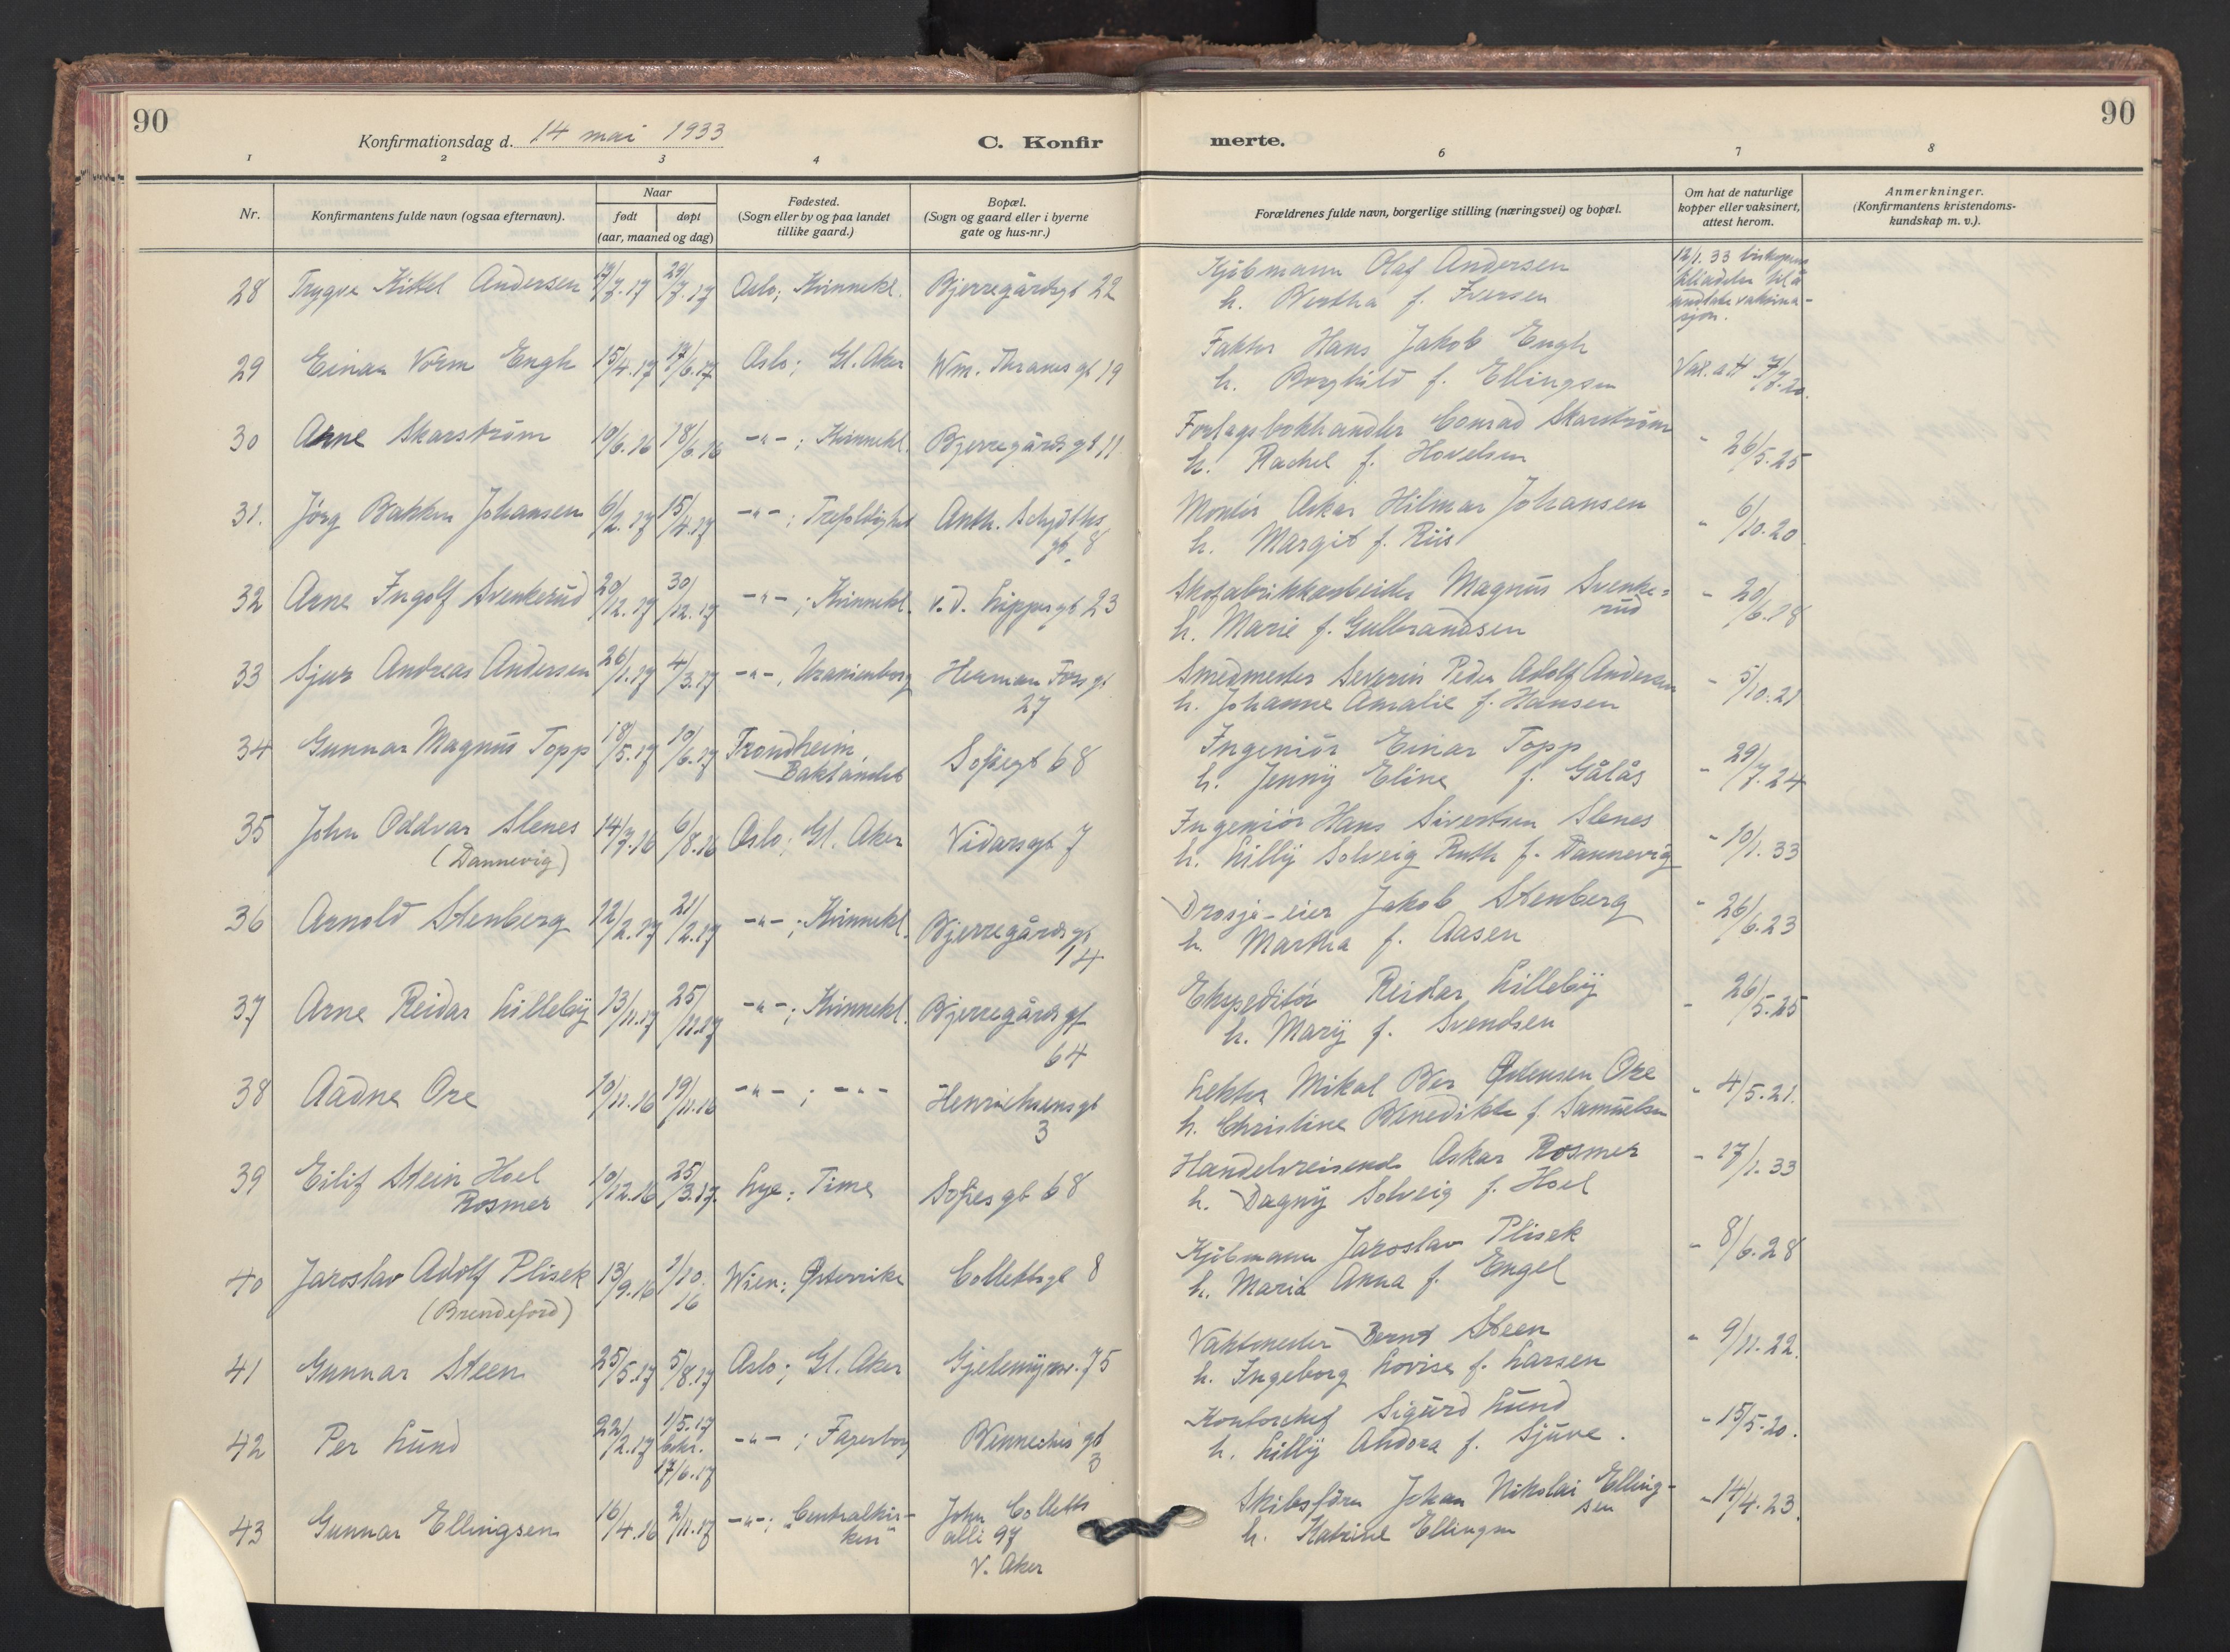 90
Konfirmationsdag d. 14 mai 1933
C. Konfir
merte.
90
1 2 3 4 6 7 8
Nr.
Konfirmantens fulde navn (ogsaa efternavn).
Naar
født
døpt
(aar, maaned og dag)
Fødested.
(Sogn eller by og paa landet
tillike gaard.)
Bopæl.
(Sogn og gaard eller i byerne
gate og hus-nr.)
Forældrenes fulde navn, borgerlige stilling (næringsvei) og bopæl.
Om hat de naturlige
kopper eller vaksinert,
attest herom.
Anmerkninger.
(Konfirmantens kristendoms-
kundskap m. v.).
28 Trygve Kittel Andersen 17/7.17 29/7.17 Oslo; Kvinnekl. Bjerregårdsgt 22
Kjöbmann Olaf Andersen
h. Bertha f. Iversen
12/1. 33 biskopens
tilladelse til å
undlate vaksina-
sjon.
29 Einar Vorm Engh 15/4.17 17/6.17 Oslo; Gl. Aker Wm. Thranes gt 19
Faktor Hans Jakob Engh
h. Borghild f. Ellingsen
Vak. att 7/7.20.
30 Arne Skarström 10/6.16 18/6.16 -"- ; Kvinnekl. Bjerregårds gt 11
Forlagsbokhandler Conrad Skarström
h. Rachel f. Hovelsen
" 26/5.25
31. Jörg Bakken Johansen 6/2.17 15/4.17 -"- ; Trefoldighet Anth. Schjöths
gt. 8
Montör Oskar Hilmar Johansen
h. Margit f. Riis
" 6/10.20
32 Arne Ingolf Svenkerud 20/12.17 30/12.17 -"- ; Kvinnekl. v. d. Lippes gt 23
Skofabrikkarbeider Magnus Svenke=
rud
h. Marie f. Gulbrandsen
- 20/6.18
33 Sjur Andreas Andersen 26/1.17 4/3.17 -"-, Uranienborg Herman Foss gt
27
Smedmester Severin Peder Adolf Andersen
h. Johanne Amalie f. Hansen
- 5/10.21
34 Gunnar Magnus Topp 18/5.17 10/6.17 Trondheim
Baklandet
Sofiegt 68
Ingeniör Einar Topp
h. Jenny Eline f. Gålås
- 29/7.24
35 John Oddvar Slenes 14/7.16 6/8.16 Oslo; Gl. Aker Vidarsgt 7
(Dannevig)
Ingeniör Hans Sivertsen Slenes
h. Lilly Solveig Ruth f. Dannevig
- 10/1. 33
36 Arnold Stenberg 12/2.17 21/2.17 -"- ; Kvinnekl. Bjerregårds gt
14
Drosje-eier Jakob Stenberg
h. Martha f. Aasen
" 26/6.23
37 Arne Reidar Lilleby 13/11.17 25/11.17 -"- ; Kvinnekl. Bjerregårds gt
64
Ekspeditör Reidar Lilleby
h. Mary f. Svendsen
- 26/5.25
38 Aadne Ore 10/11.16 19/11.16 -"- ; -"- Henrichsensgt
3
Lektor Mikal Ber Østensen Ore
h. Christine Benedikte f. Samuelsen
" 4/5.21.
39 Eilif Stein Hoel
Rosmer
10/12.16 25/3.17. Lye; Time Sofies gt 68
Handelsreisende Oskar Rosmer
h. Dagny Solveig f. Hoel
- 17/1. 33
40 Jaroslav Adolf Plisek 13/9.16 1/10.
16
Wien; Østerrike Collettsgt 8
(Brendeford)
Kjöbmann Jaroslav Plisek
h. Maria Anna f. Engel
- 8/6.28
41 Gunnar Steen 25/5.17 5/8.17 Oslo; Gl. Aker Gjetemyrsv. 75
Vaktmester Bernt Steen
h. Ingeborg Lovise f. Larsen
" 9/11.22.
42 Per Lund 22/2.17 1/5.17
bekr.
17/6.17
-"- ; Fagerborg Bennechesgt
3
Kontorchef Sigurd Lund
h. Lilly Andora f. Sjuve.
- 15/5.20.
43 Gunnar Ellingsen 16/4.16 2/11.17 -"- ; "Centralkir-
ken"
John Colletts
allé 97
V. Aker
Skibsförer Johan Nikolai Elling-
sen
h. Katrine Ellingsen
- 14/4.23.